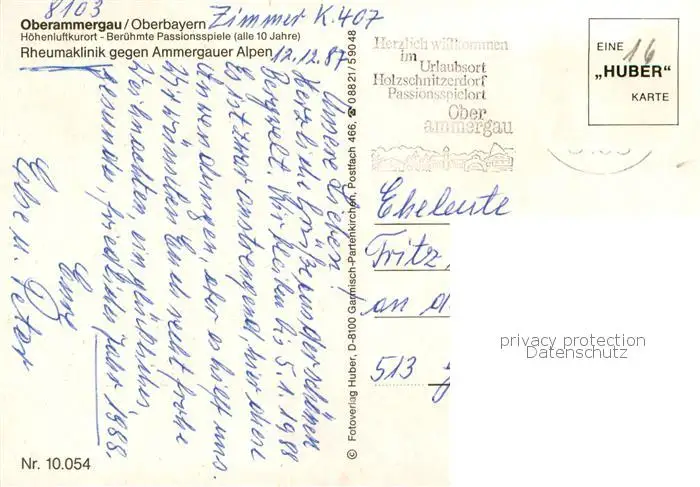 8103
Zimmer K.407
Oberammergau/Oberbayern
Höhenluftkurort - Berühmte Passionsspiele (alle 10 Jahre)
Rheumaklinik gegen Ammergauer Alpen
12.12.87
Unsere Lieben!
Herzliche Grüße aus der schönen
Bergwelt. Wir bleiben bis 5.1.1988
Es ist zwar anstrengend, hier die
Anwendungen, aber es hilft uns.
Wir wünschen Euch recht frohe
Weihnachten, ein glückliches,
gesundes, friedliches Jahr 1988.
Eure
Else u. Peter
Nr. 10.054
© Fotoverlag Huber, D-8100 Garmisch-Partenkirchen, Postfach 466, ☎ 08821/59048
Herzlich willkommen
im
Urlaubsort
Holzschnitzerdorf
Passionsspielort
Ober
ammergau
EINE
16
„HUBER"
KARTE
Eheleute
Fritz
an d
513
privacy protection
Datenschutz